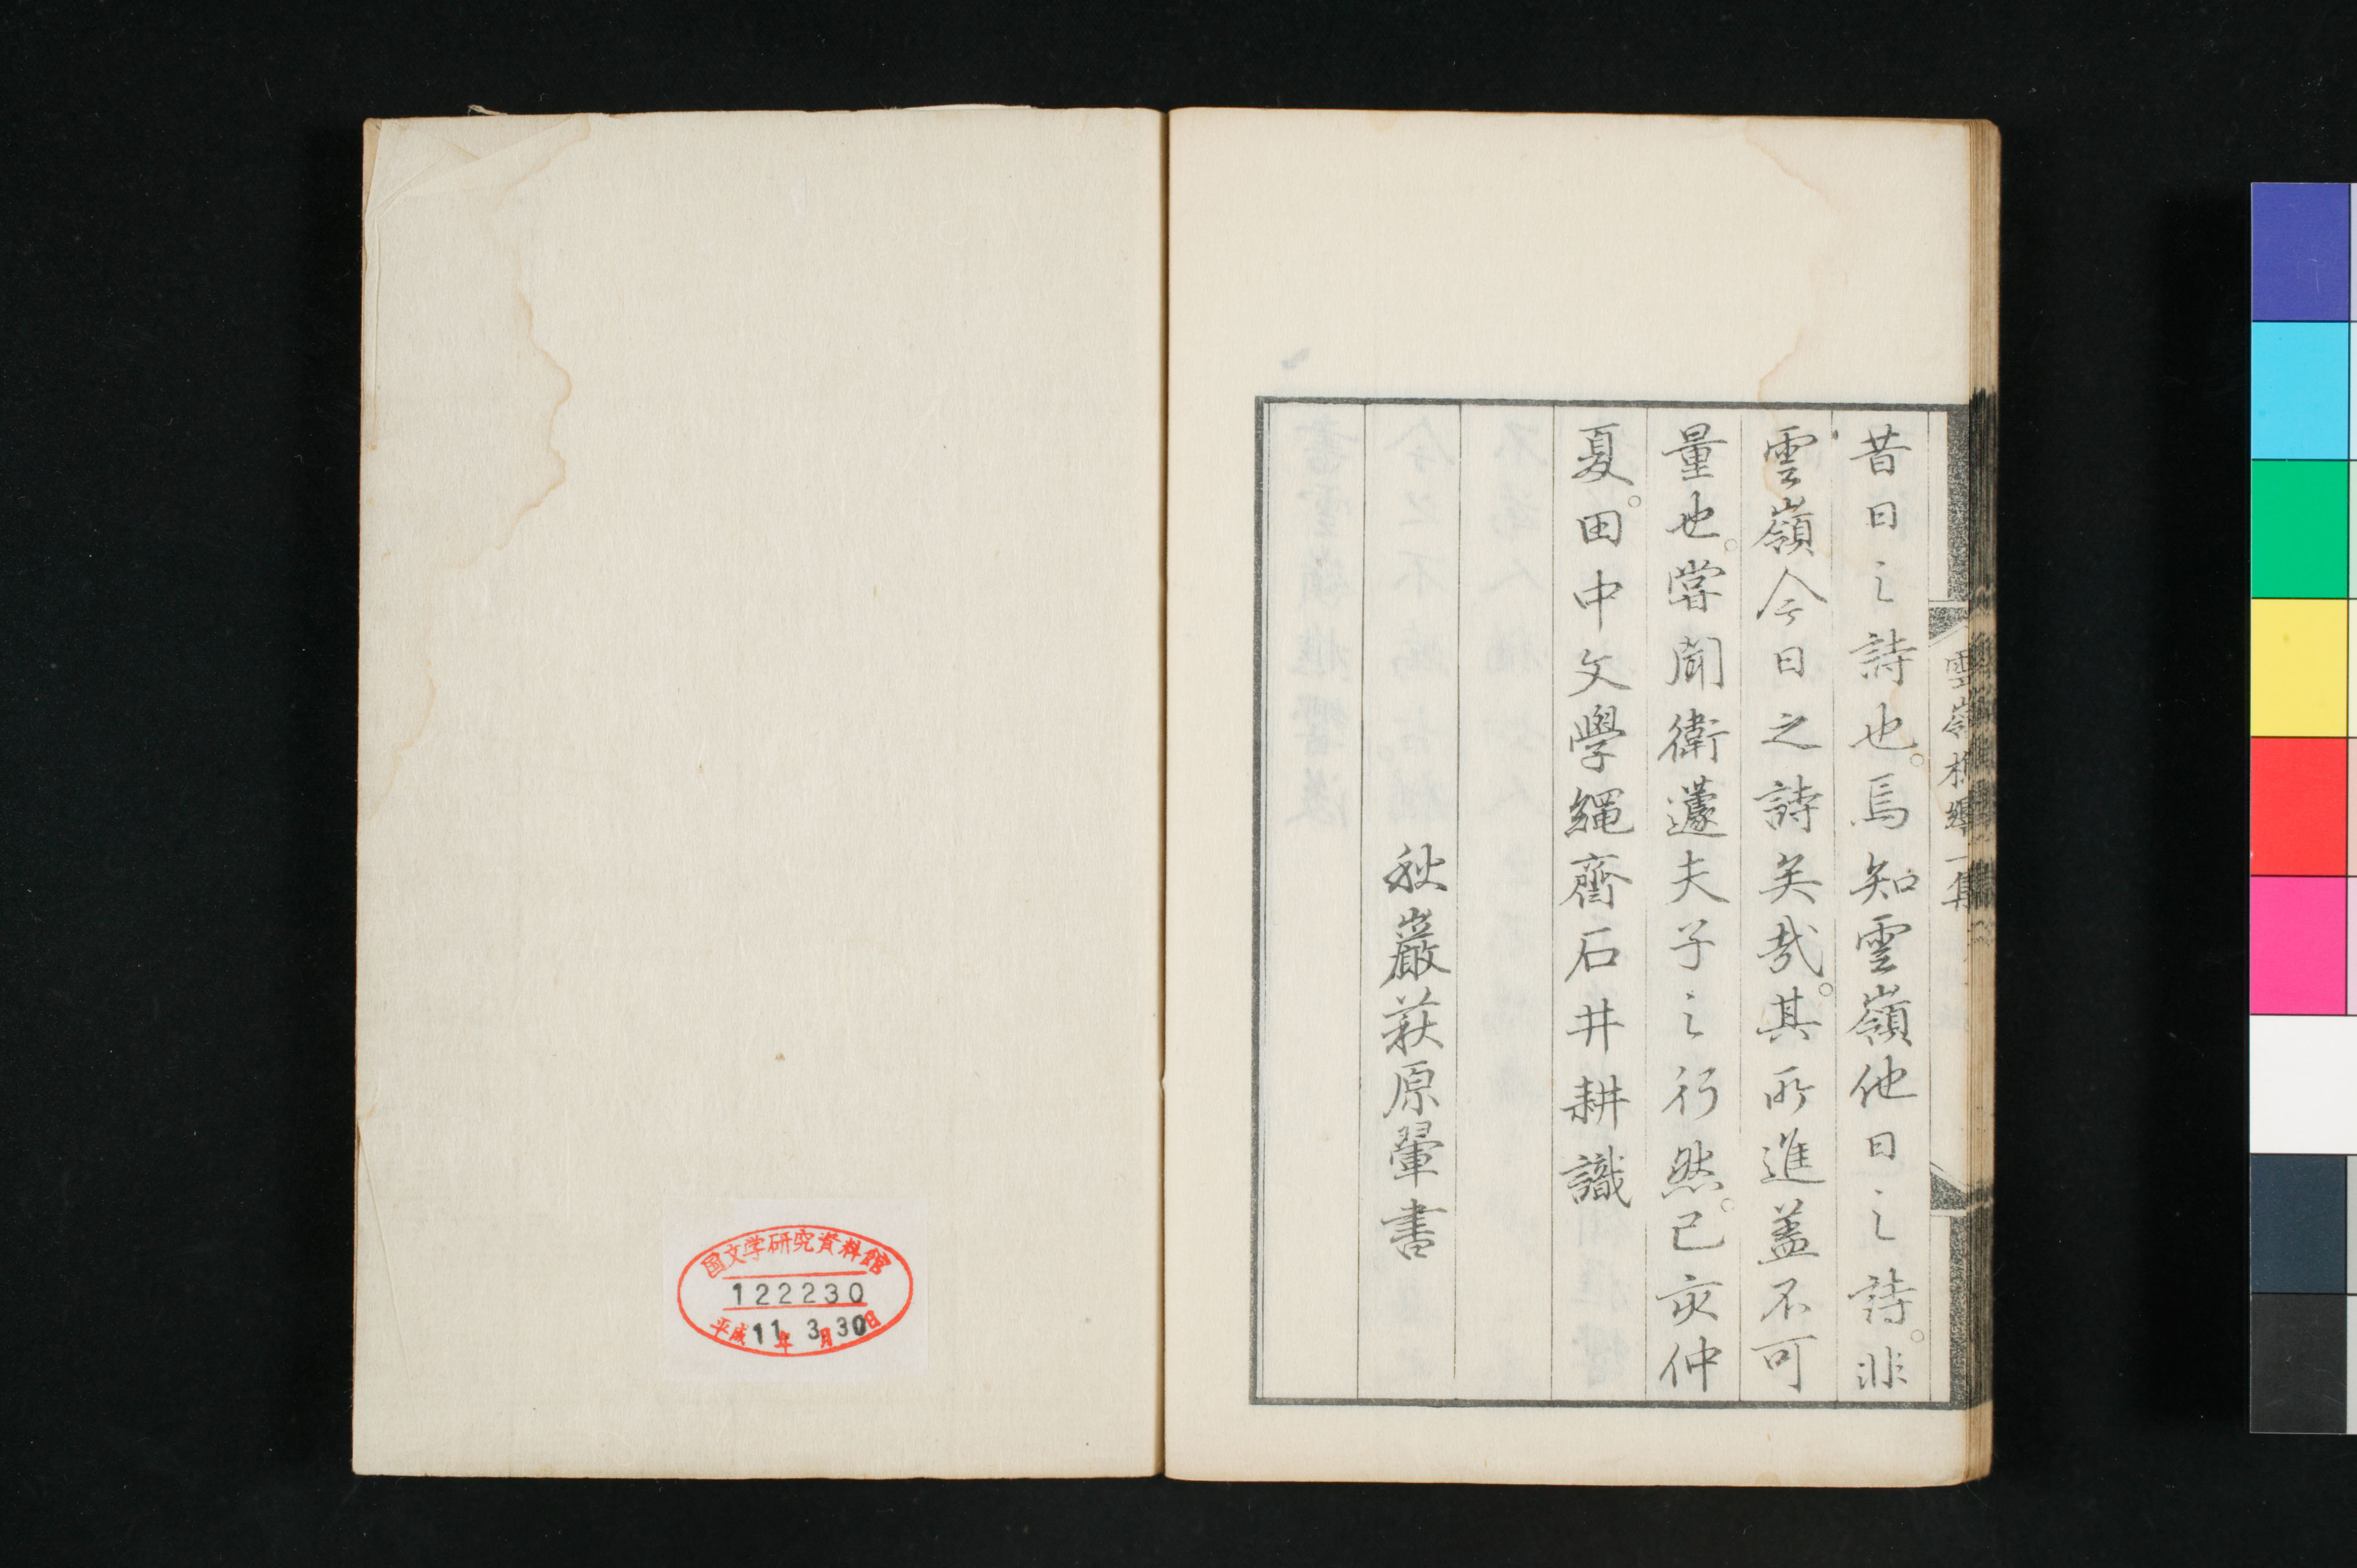 昔日之詩也。焉知雲嶺他日之詩。非
雲嶺今日之詩矣哉。其所進蓋不可
量也。嘗聞衛蘧夫子之行然。己亥仲
夏。田中文學繩齋石井耕識
秋巖萩原翬書
国文学研究資料館
122230
平成11年3月30日